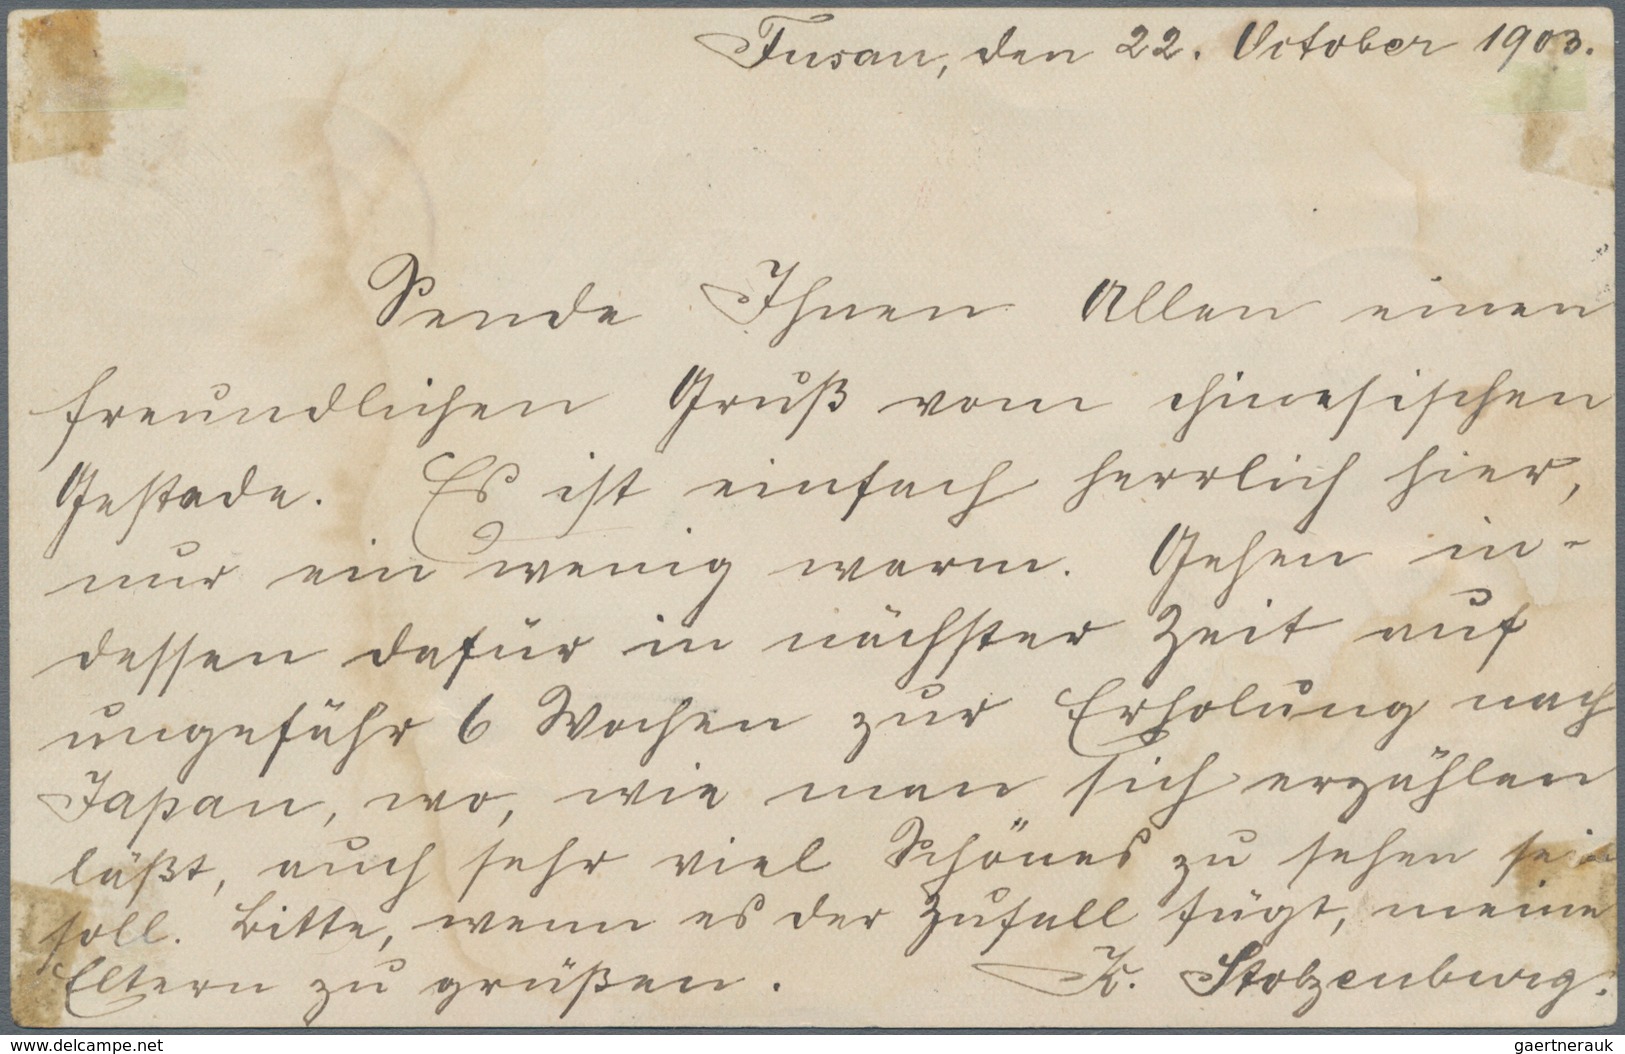 Fusan, den 22. October 1903.
Sende Ihnen Allen einen
freundlichen Gruß vom chinesischen
Gestade. Es ist einfach herrlich hier,
nur ein wenig warm. Gehen in-
dessen dafür in nächster Zeit auf
ungefähr 6 Wochen zur Erholung nach
Japan, wo, wie man sich erzählen
läßt, auch sehr viel Schönes zu sehen sein
soll. Bitte, wenn es der Zufall fügt, meine
Eltern zu grüßen. K. Stolzenburg.
www.delcampe.net
gaertnerauk